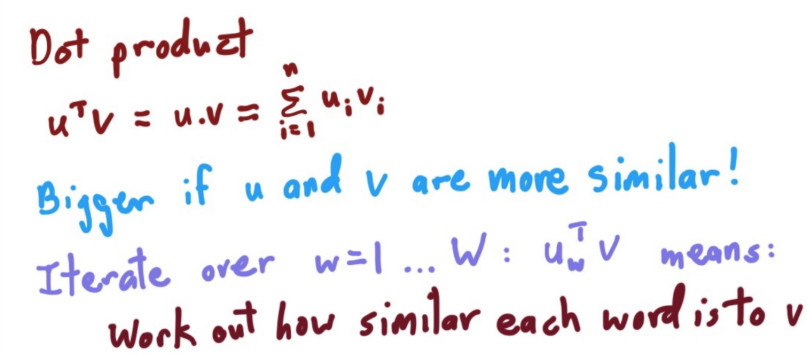 Dot product
uᵀv = u.v = ∑ⁿᵢ₌₁ uᵢvᵢ
Bigger if u and v are more similar!
Iterate over w=1 ... W : u_wᵀ v means:
Work out how similar each word is to v